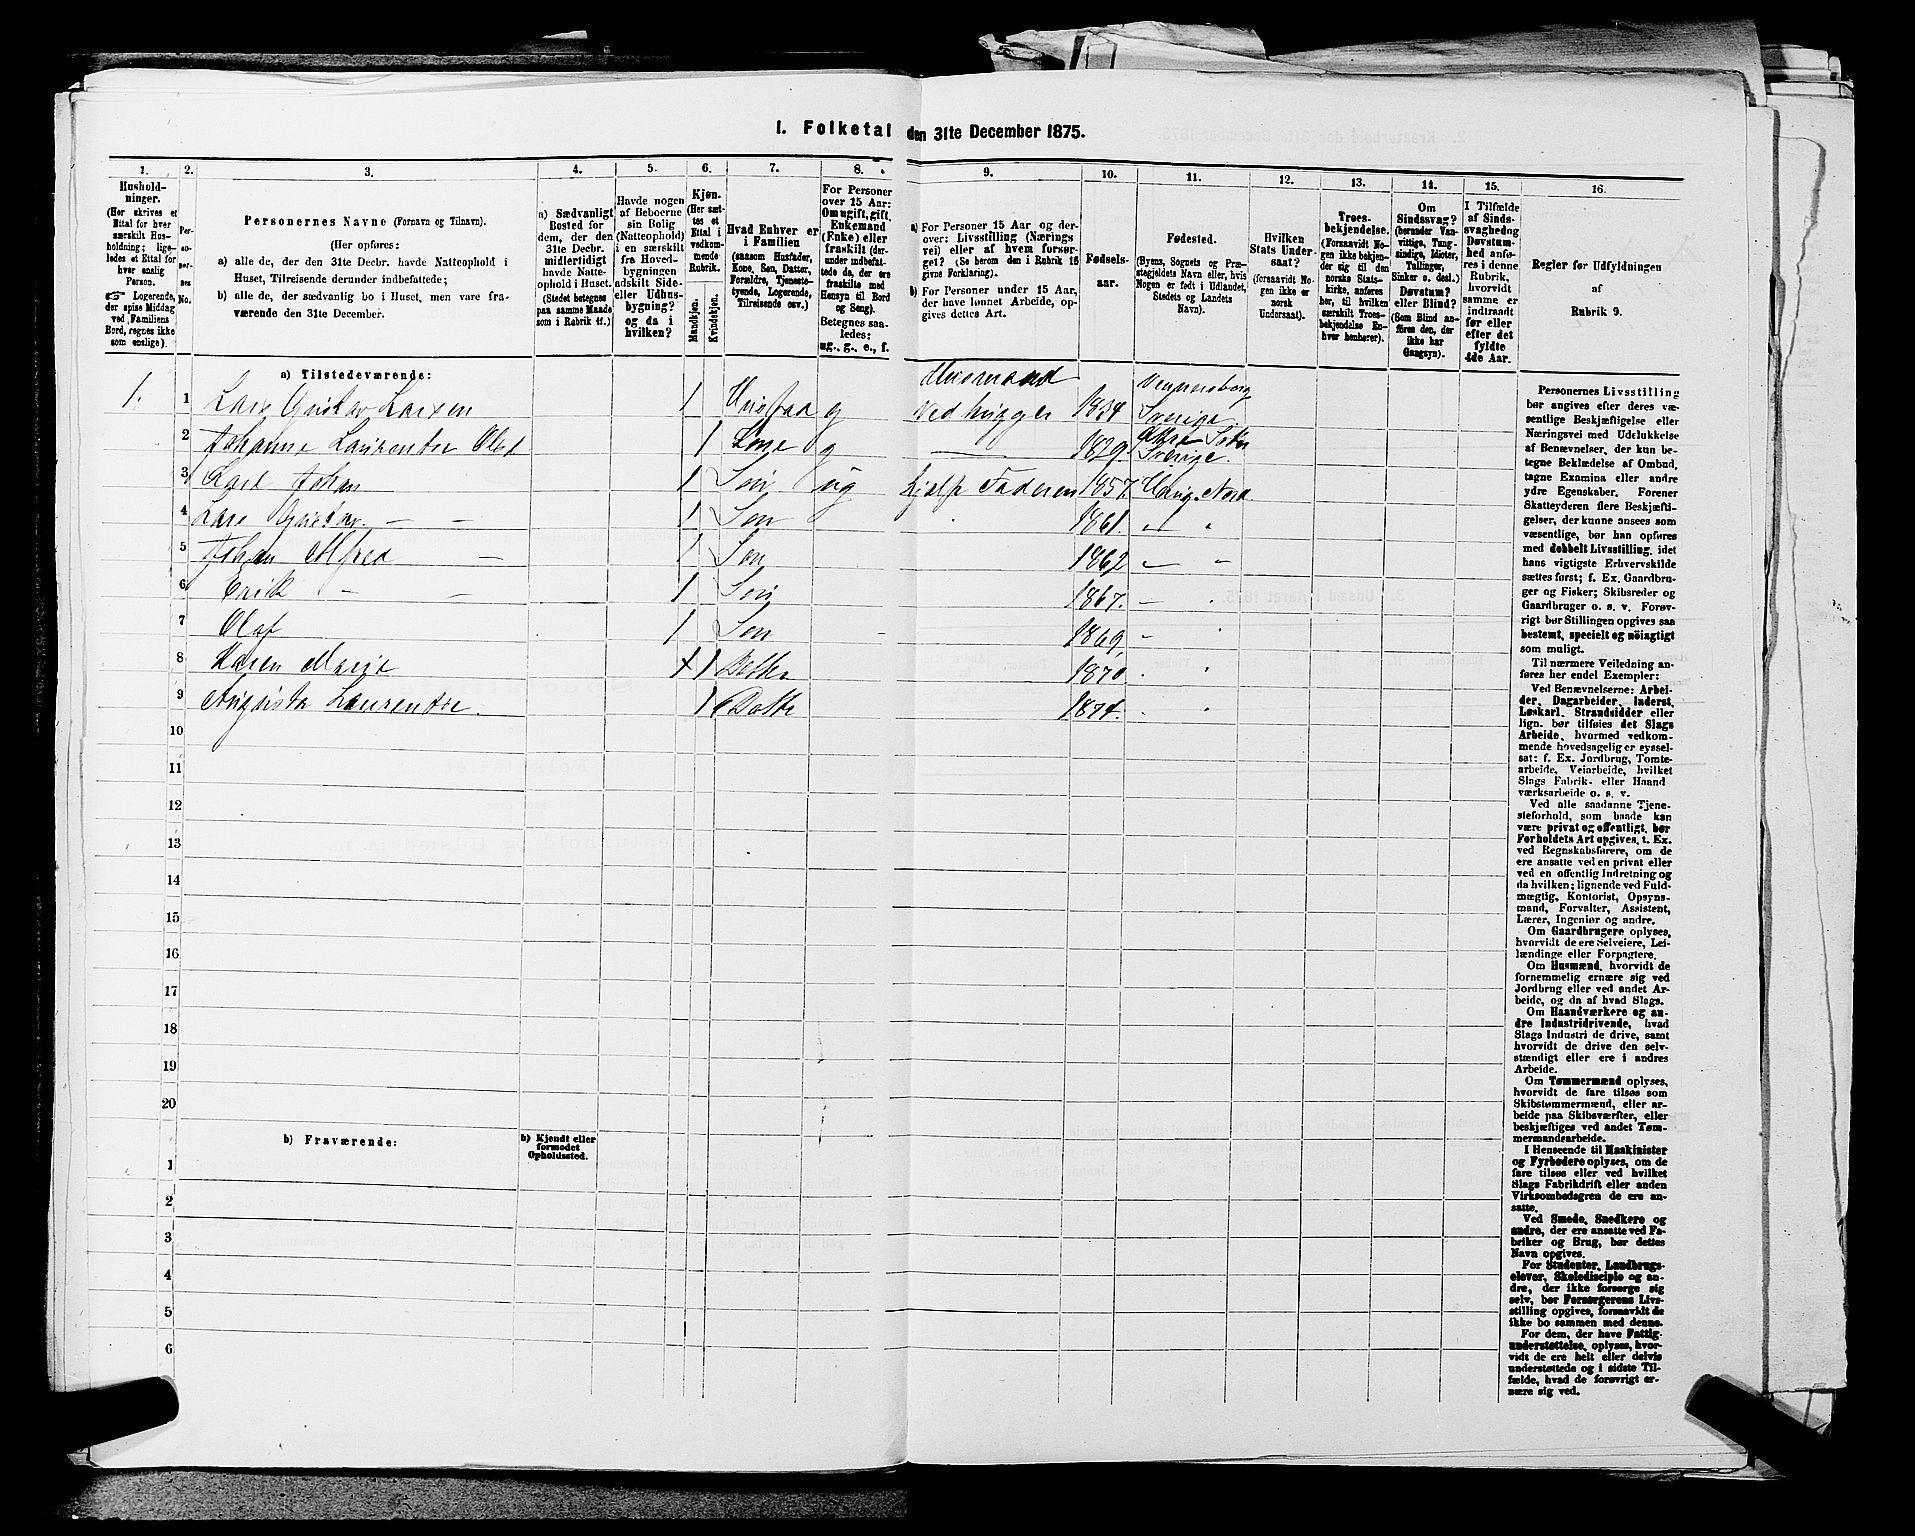 1. Folketal den 31te December 1875.
1. 2. 3. 4. 5. 6. 7. 8. 9. 10. 11. 12. 13. 14. 15. 16.
Hushold-
ninger.
(Her skrives et
Ettal for hver
særskilt Hus-
holdning; lige-
ledes et Ettal for
hver enslig
Person.
☞ Logerende,
der spise Middag
ved Familiens
Bord, regnes ikke
som enslige).
Per-
so-
ner-
nes
No.
Personernes Navne (Fornavn og Tilnavn).
(Her opføres:
a) alle de, der den 31te Decbr. havde Natteophold i
Huset, Tilreisende derunder indbefattede;
b) alle de, der sædvanlig bo i Huset, men vare fra-
værende den 31te December.
a) Sædvanligt
Bosted for
dem, der den
31te Decbr.
midlertidigt
havde Natte-
ophold i Huset.
(Stedet betegnes
paa samme Maade
som i Rubrik 11.)
Havde nogen
af Beboerne
sin Bolig
(Natteophold)
i en særskilt
fra Hoved-
bygningen
adskilt Side-
eller Udhus-
bygning?
og da i
hvilken?
Kjøn.
(Her sæt-
tes et
Ettal i
vedkom-
mende
Rubrik.
Mandkjøn.
Kvindekjøn.
Hvad Enhver er
i Familien
(saasom Husfader,
Kone, Søn, Datter,
Forældre, Tjeneste-
tyende, Logerende,
Tilreisende osv.)
For Personer
over 15 Aar:
Om ugift, gift,
Enkemand
(Enke) eller
fraskilt (der-
under indbefat-
tede da, der ere
fraskilte med
Hensyn til Bord
og Seng).
Betegnes saa-
ledes:
ug., g., e., f.
a) For Personer 15 Aar og der-
over: Livsstilling (Nærings
vei) eller af hvem forsør-
get? (Se herom den i Rubrik 16
givne Forklaring).
b) For Personer under 15 Aar,
der have lønnet Arbeide, op-
gives dettes Art.
Fødsels-
aar.
Fødested.
(Byens, Sognets og Præ-
stegjeldets Navn eller, hvis
Nogen er født i Udlandet,
Stedets og Landets
Navn).
Hvilken
Stats Under-
saat?
(forsaavidt No-
gen ikke er
norsk
Undersaat).
Troes-
bekjendelse.
(Forsaavidt No-
gen ikke bekjen-
der sig til den
norske Stats-
kirke, anføres
her, til hvilken
særskilt Troes-
bekjendelse En-
hver henhører).
Om
Sindssvag?
(herunder Van-
vittige, Tung-
sindige, Idioter,
Tullinger,
Sinker o. desl.)
Døvstum?
eller Blind?
(Som Blind an-
føres den, der
ikke har
Gangsyn).
I Tilfælde
af Sinds-
svaghed og
Døvstum-
hed anfø-
res i denne
Rubrik,
hvorvidt
samme er
indtraadt
før eller
efter det
fyldte
4de Aar.
Regler for Udfyldningen
af
Rubrik 9.
a) Tilstedeværende:
1. 1 Lars Gustav Larsen 1 Husfad g Husmand Vedhugger 1834 Vennersborg Sverige
2 Johanne Laurentse Olsd 1 Kone g — 1829. Sverige.
3 Karl Johan 1 Søn ug hjelp Faderen 1857. Haug. Nord
4 Lars Gustav. — — 1 Søn 1861. — "
5 Johan Alfred — 1 Søn 1862 — "
6 Erik — — 1 Søn 1867. — "
7 Olaf 1 Søn 1869. — "
8 Karen Marie 1 Datter 1870. "
9 Augusta Laurentse. 1 Datte 1874. "
10
11
12
13
14
15
16
17
18
19
20
b) Fraværende:
b) Kjendt eller
formodet
Opholdssted.
1
2
3
4
5
6
Personernes Livsstilling
bør angives efter deres væ-
sentlige Beskjæftigelse eller
Næringsvei med Udelukkelse
af Benævnelser, der kun be-
tegne Beklædelse af Ombud,
tagne Examina eller andre
ydre Egenskaber. Forener
Skatteyderen flere Beskjæfti-
gelser, der kunne ansees som
væsentlige, bør han opføres
med dobbelt Livsstilling, idet
hans vigtigste Erhvervskilde
sættes først; f. Ex. Gaardbru-
ger og Fisker; Skibsreder og
Gaardbruger o. s. v. Forøv-
rigt bør Stillingen opgives saa
bestemt, specielt og nöiagtigt
som muligt.
Til nærmere Veiledning an-
føres her endel Exempler:
Ved Benævnelserne: Arbei-
der, Dagarbeider, Inderst,
Løskarl, Strandsidder eller
lign. bør tilføies det Slags
Arbeide, hvormed vedkom-
mende hovedsagelig er syssel-
sat: f. Ex. Jordbrug, Tomte-
arbeide, Veiarbeide, hvilket
Slags Fabrik- eller Haand
værksarbeide o. s. v.
Ved alle saadanne Tjene-
steforhold, som baade kan
være privat og offentligt, bør
Forholdets Art opgives, t. Ex.
ved Regnskabsførere, om de
ere ansatte ved en privat eller
ved en offentlig Indretning og
da hvilken; lignende ved Fuld-
mægtig, Kontorist, Opsyns-
mand, Forvalter, Assistent,
Lærer, Ingeniør og andre.
Om Gaardbrugere oplyses,
hvorvidt de ere Selveiere, Lei-
lændinge eller Forpagtere.
Om Husmænd, hvorvidt de
fornemmelig ernære sig ved
Jordbrug eller ved andet Ar-
beide, og da af hvad Slags.
Om Haandværkere og an-
dre Industridrivende, hvad
Slags Industri de drive, samt
hvorvidt de drive den selv-
stændigt eller ere i andres
Arbeide.
Om Tømmermænd oplyses,
hvorvidt de fare tilsøs som
Skibstømmermænd, eller ar-
beide paa Skibsværfter, eller
beskjæftiges ved andet Tøm-
mermandsarbeide.
I Henseende til Maskinister
og Fyrbødere oplyses, om de
fare tilsøs eller ved hvilket
Slags Fabrikdrift eller anden
Virksomhedsgren de ere an-
satte.
Ved Smede, Snedkere og
andre, der ere ansatte ved Fa-
briker og Brug, bør dettes
Navn opgives.
For Studenter, Landbrugs-
elever, Skoledisciple og an-
dre, der ikke forsørge sig
selv, bør Forsørgerens Livs-
stilling opgives, forsaavidt de
ikke bo sammen med denne.
For dem, der have Fattig-
understøttelse, oplyses, hvor-
vidt de ere helt eller delvis
understøttede og i sidste Til-
fælde, hvad de forøvrigt er-
nære sig ved.